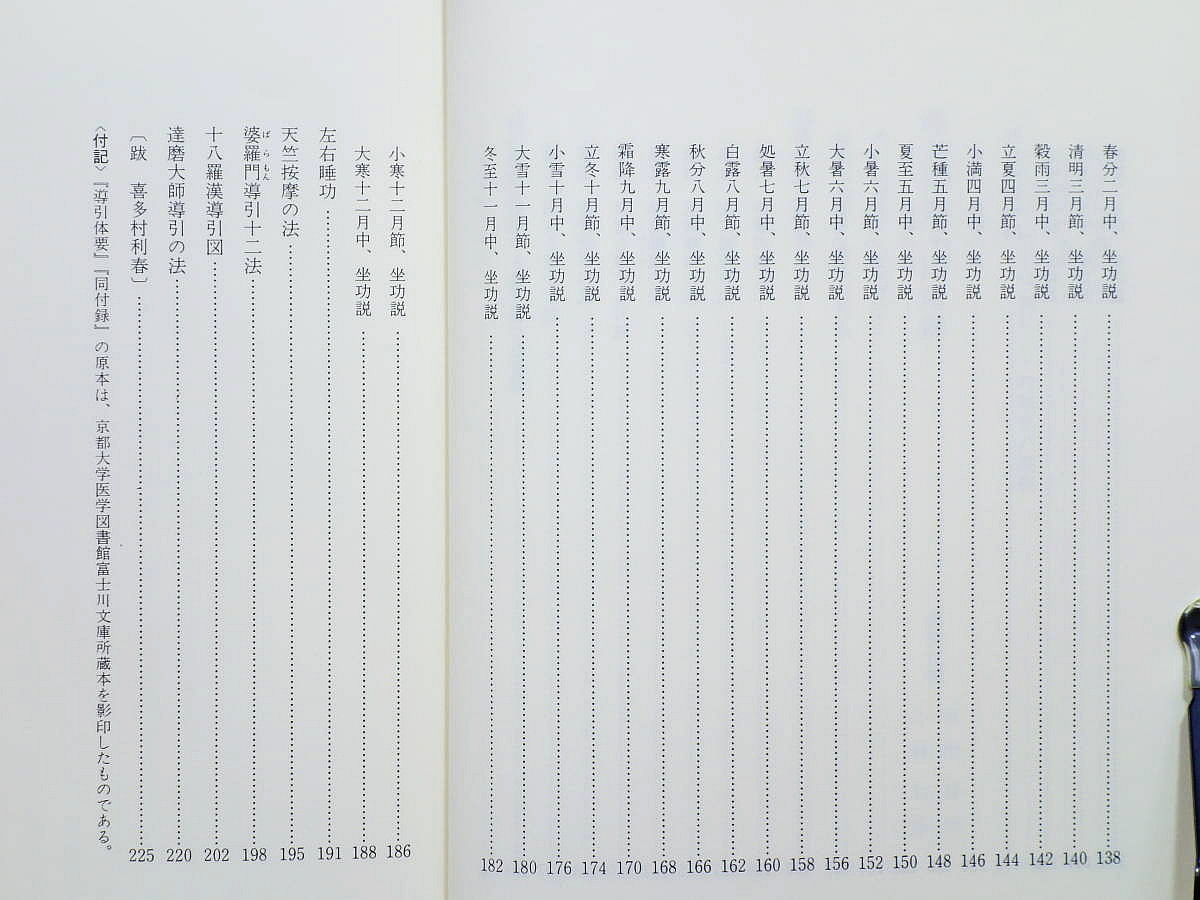 春分二月中、坐功説……138
清明三月節、坐功説……140
穀雨三月中、坐功説……142
立夏四月節、坐功説……144
小満四月中、坐功説……146
芒種五月節、坐功説……148
夏至五月中、坐功説……150
小暑六月節、坐功説……152
大暑六月中、坐功説……156
立秋七月節、坐功説……158
処暑七月中、坐功説……160
白露八月節、坐功説……162
秋分八月中、坐功説……166
寒露九月節、坐功説……168
霜降九月中、坐功説……170
立冬十月節、坐功説……174
小雪十月中、坐功説……176
大雪十一月節、坐功説……180
冬至十一月中、坐功説……182
小寒十二月節、坐功説……186
大寒十二月中、坐功説……188
左右睡功……191
天竺按摩の法……195
婆羅門導引十二法……198
ばらもん
十八羅漢導引図……202
達磨大師導引の法……220
〔跋　喜多村利春〕……225
〈付記〉『導引体要』『同付録』の原本は、京都大学医学図書館富士川文庫所蔵本を影印したものである。